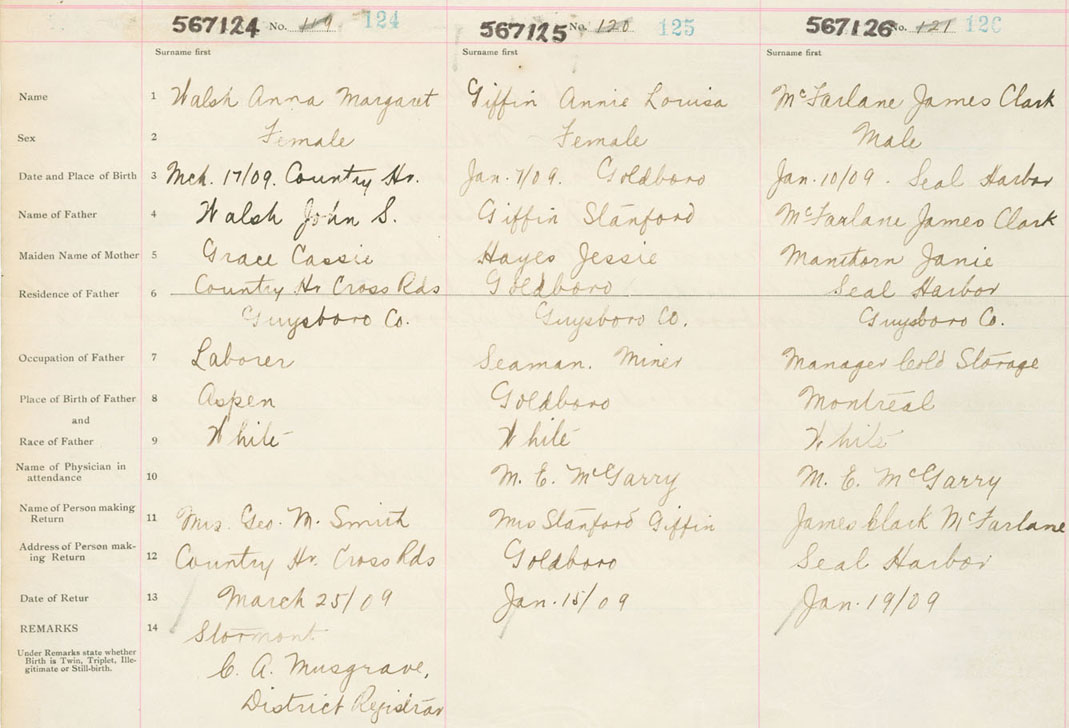 567124 No. 119 124 567125 No. 120 125 567126 No. 121 126
Surname first Surname first Surname first
Name 1 Walsh Anna Margaret Giffin Annie Louisa McFarlane James Clark
Sex 2 Female Female Male
Date and Place of Birth 3 Mch. 17/09. Country Hr. Jan. 7/09. Goldboro Jan. 10/09. Seal Harbor
Name of Father 4 Walsh John S. Giffin Stanford McFarlane James Clark
Maiden Name of Mother 5 Grace Cassie Hayes Jessie Manthorn Janie
Residence of Father 6 Country Hr Cross Rds Goldboro Seal Harbor
Guysboro Co. Guysboro Co. Guysboro Co.
Occupation of Father 7 Laborer Seaman. Miner Manager Cold Storage
Place of Birth of Father 8 Aspen Goldboro Montreal
and
Race of Father 9 White White White
Name of Physician in attendance 10 M. E. McGarry M. E. McGarry
Name of Person making Return 11 Mrs. Geo. M. Smith Mrs Stanford Giffin James Clark McFarlane
Address of Person mak-ing Return 12 Country Hr. Cross Rds Goldboro Seal Harbor
Date of Retur 13 March 25/09 Jan. 15/09 Jan. 19/09
REMARKS 14 Stormont
Under Remarks state whether
Birth is Twin, Triplet, Ille-
gitimate or Still-birth.
C. A. Musgrave,
District Registrar